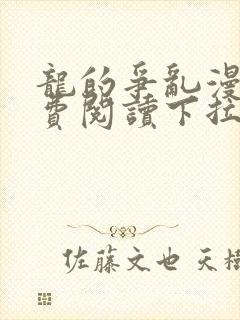 龍的爭亂漫
費閱讀下拉
佐藤文也 天樹